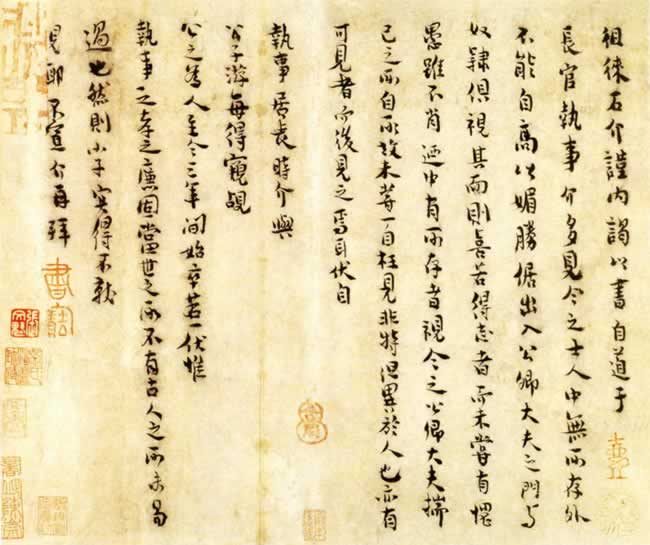 徂徠石介謹內謁以書自道于
長官執事介多見今之士人中無所存外
不能自高以媚勝倨出入公卿大夫之門與
奴隸俱視其面則喜若得志者而未嘗有
愚雖不肖迺中有所存者視今之公卿大夫揣
己之所自故未嘗一自枉見非特但異於人也亦有
可見者而後見之焉耳伏自
執事居喪時介與
公子游每得窺覘
公之為人至今三年間始卒若一伏惟
執事之孝之廉固當世之所不有古人之所未曷
過也然則小子得不就
見耶不宣介再拜